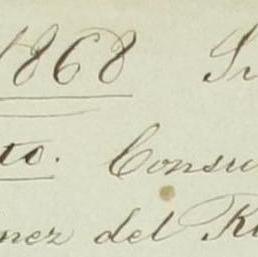 1868
to. Consu
nez del